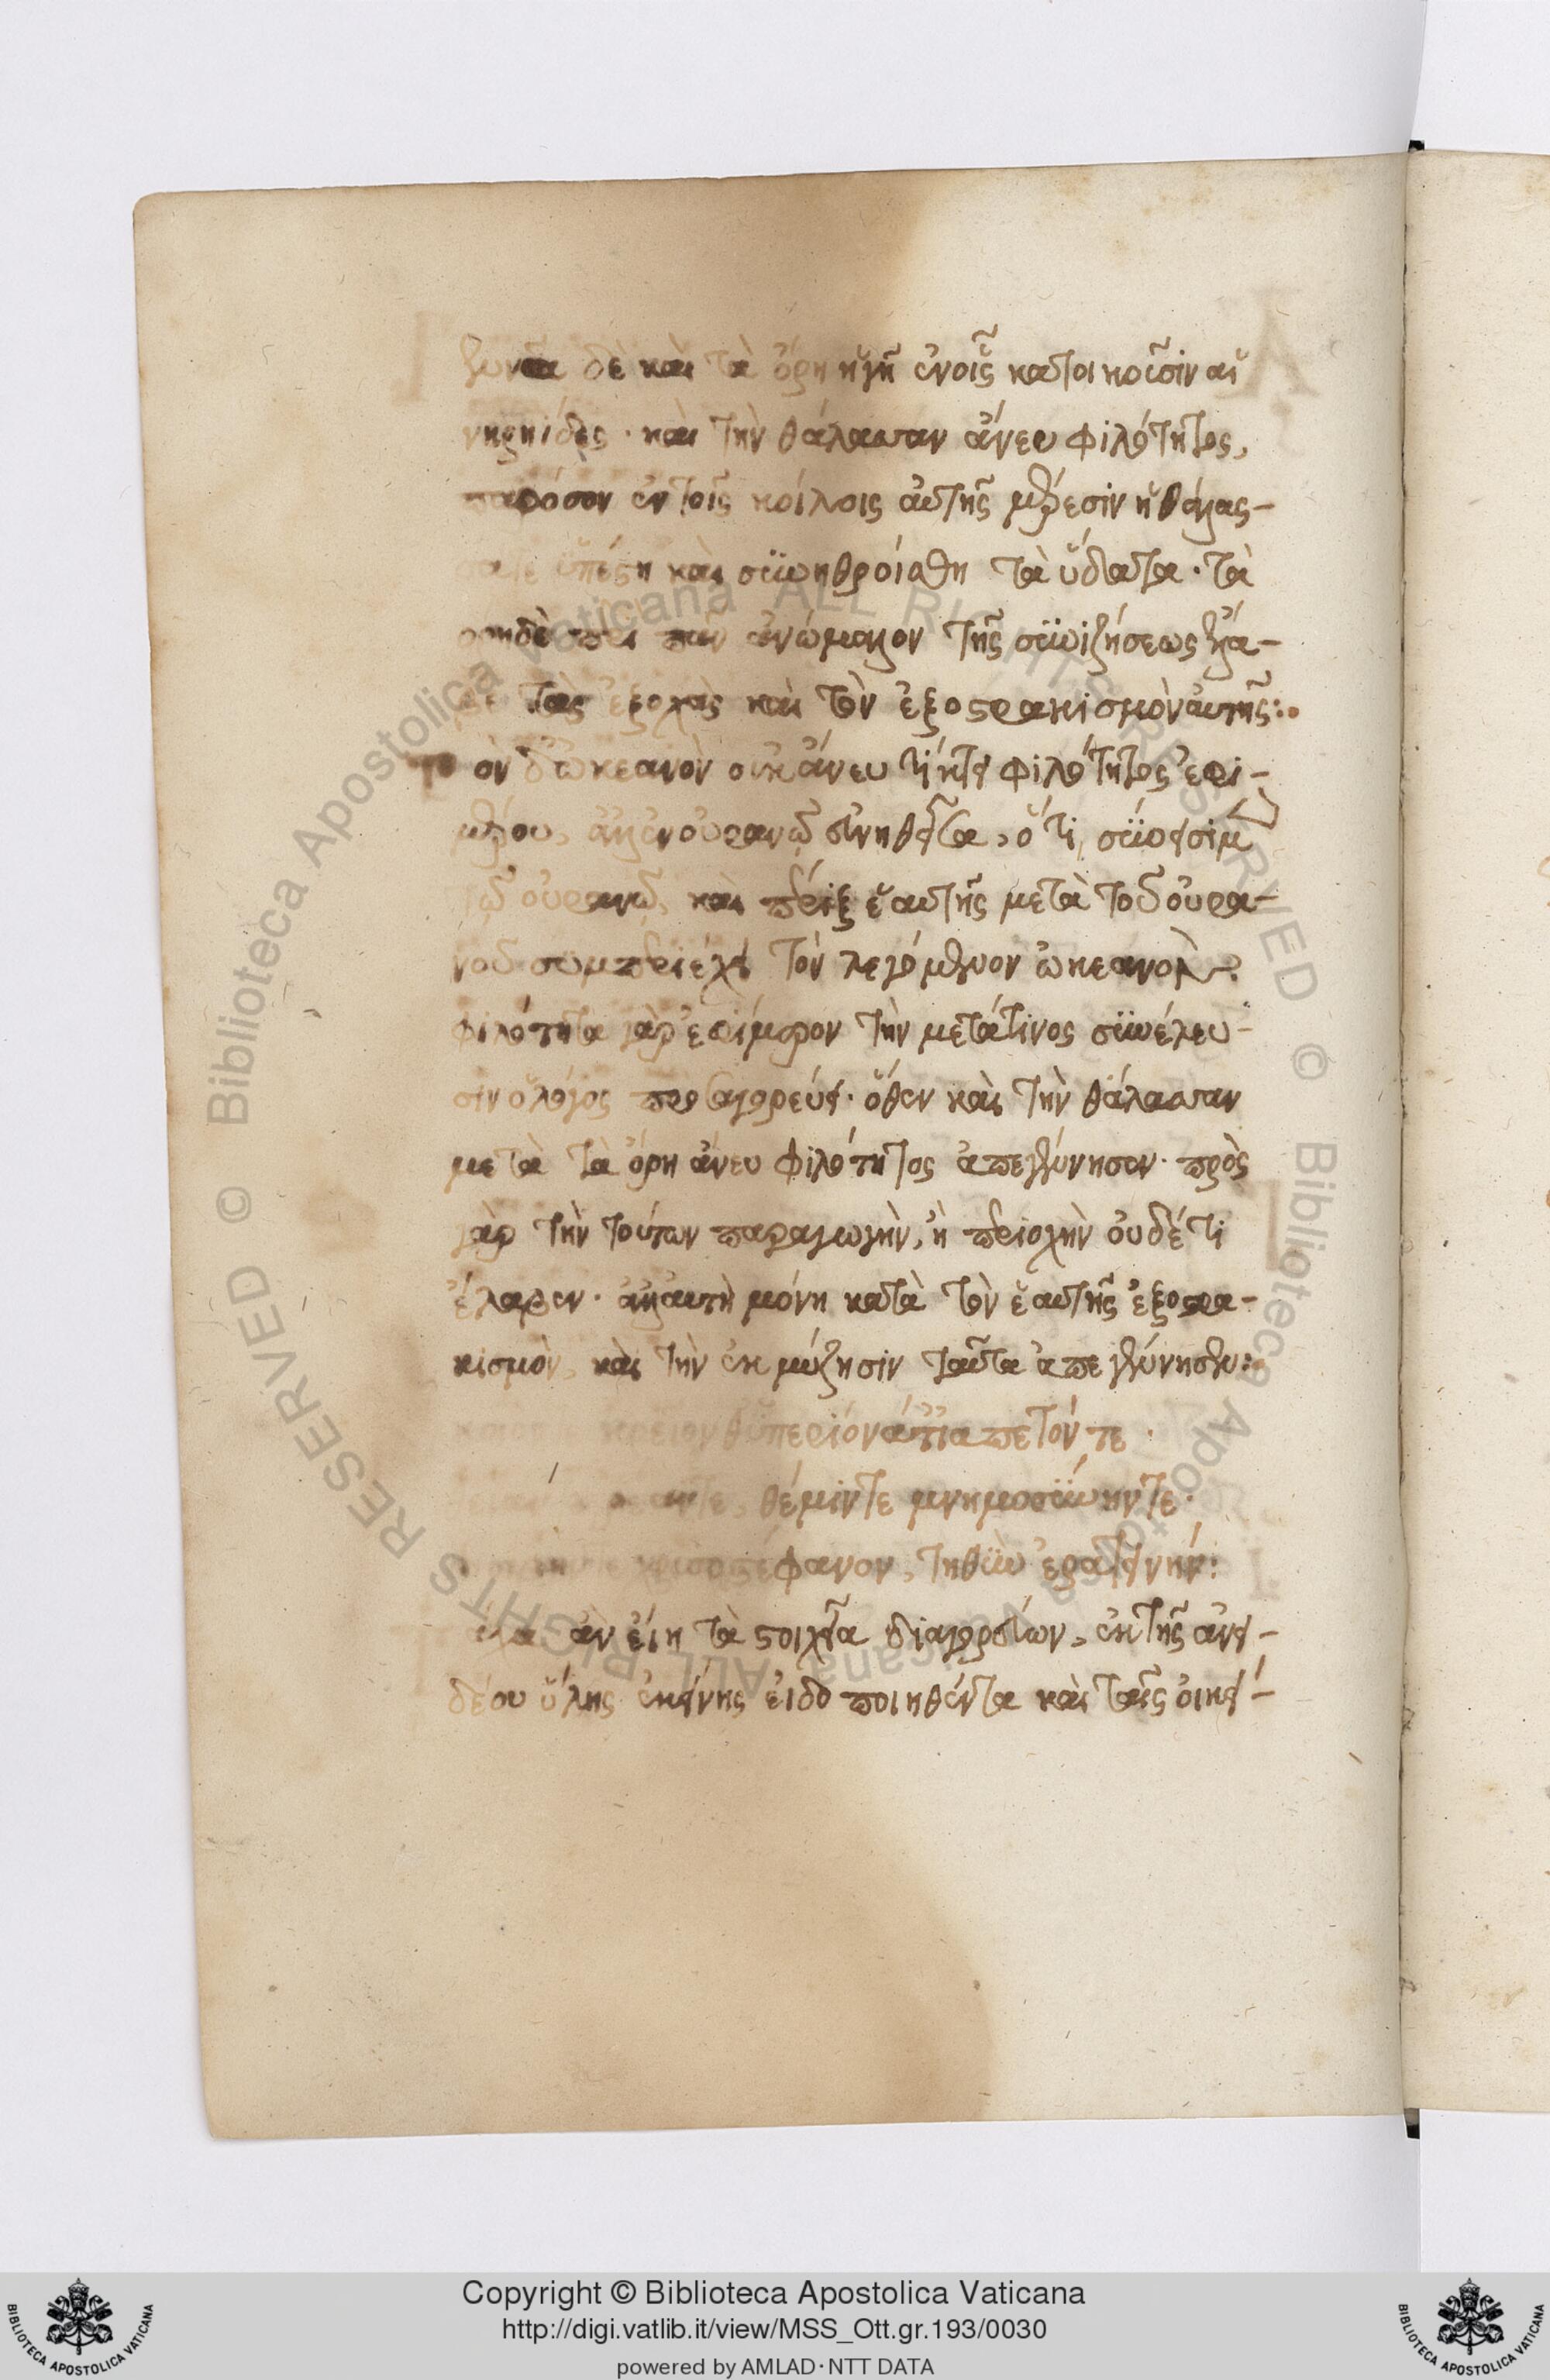 γεννᾶ δὲ καὶ τὰ ὄρη ἡ γῆ ἐν οἷς κατοικοῦσιν αἱ
νηρηίδες· καὶ τὴν θάλασσαν ἄνευ φιλότητος,
παρόσον ἐν τοῖς κοίλοις αὐτῆς μέρεσιν ἡ θάλασ-
σα τε ὑπέστη καὶ συνηθροίσθη τὰ ὕδατα· τὰ
ὄρη δὲ πᾶν ἀνώμαλον τῆς συνιζήσεως ἔλα-
βε τὰς ἐξοχὰς καὶ τὸν ἐξοστρακισμὸν αὐτῆς:
Τὸν δ' ὠκεανὸν οὐκ ἄνευ φιλότητος ἐφι-
μέρου, ἀλλ' ἐν οὐρανῷ εὐνηθεῖσα, ὅτι σύνεισι μ
τῷ οὐρανῷ, καὶ πέριξ ἑαυτῆς μετὰ τοῦ οὐρα-
νοῦ συμπεριέχει τὸν λεγόμενον ὠκεανόν.
φιλότητα γὰρ ἐφίμερον τὴν μετά τινος συνέλευ-
σιν ὁ λόγος προσαγορεύει· ὅθεν καὶ τὴν θάλασσαν
μετὰ τὰ ὄρη ἄνευ φιλότητος ἀπεγέννησεν· πρὸς
γὰρ τὴν τούτων παραγωγὴν, ἢ περιοχὴν οὐδέ τι
ἔλαβεν· ἀλλ' αὐτὴ μόνη κατὰ τὸν ἑαυτῆς ἐξοστρα-
κισμὸν, καὶ τὴν ἐκμύζησιν ταῦτα ἀπεγέννησεν:
κρεῖον θ' ὑπερίονά τ' ἰαπετόν τε·
θέμιν τε μνημοσύνην τε·
χρυσοστέφανον, τηθὺν ἐρατεινήν:
ἂν εἴη τὰ στοιχεῖα διαγορεύων, ἐκ τῆς ἀνει-
δέου ὕλης ἐκείνης εἰδοποιηθέντα καὶ ταῖς οἰκεί-
Copyright © Biblioteca Apostolica Vaticana
http://digi.vatlib.it/view/MSS_Ott.gr.193/0030
powered by AMLAD·NTT DATA